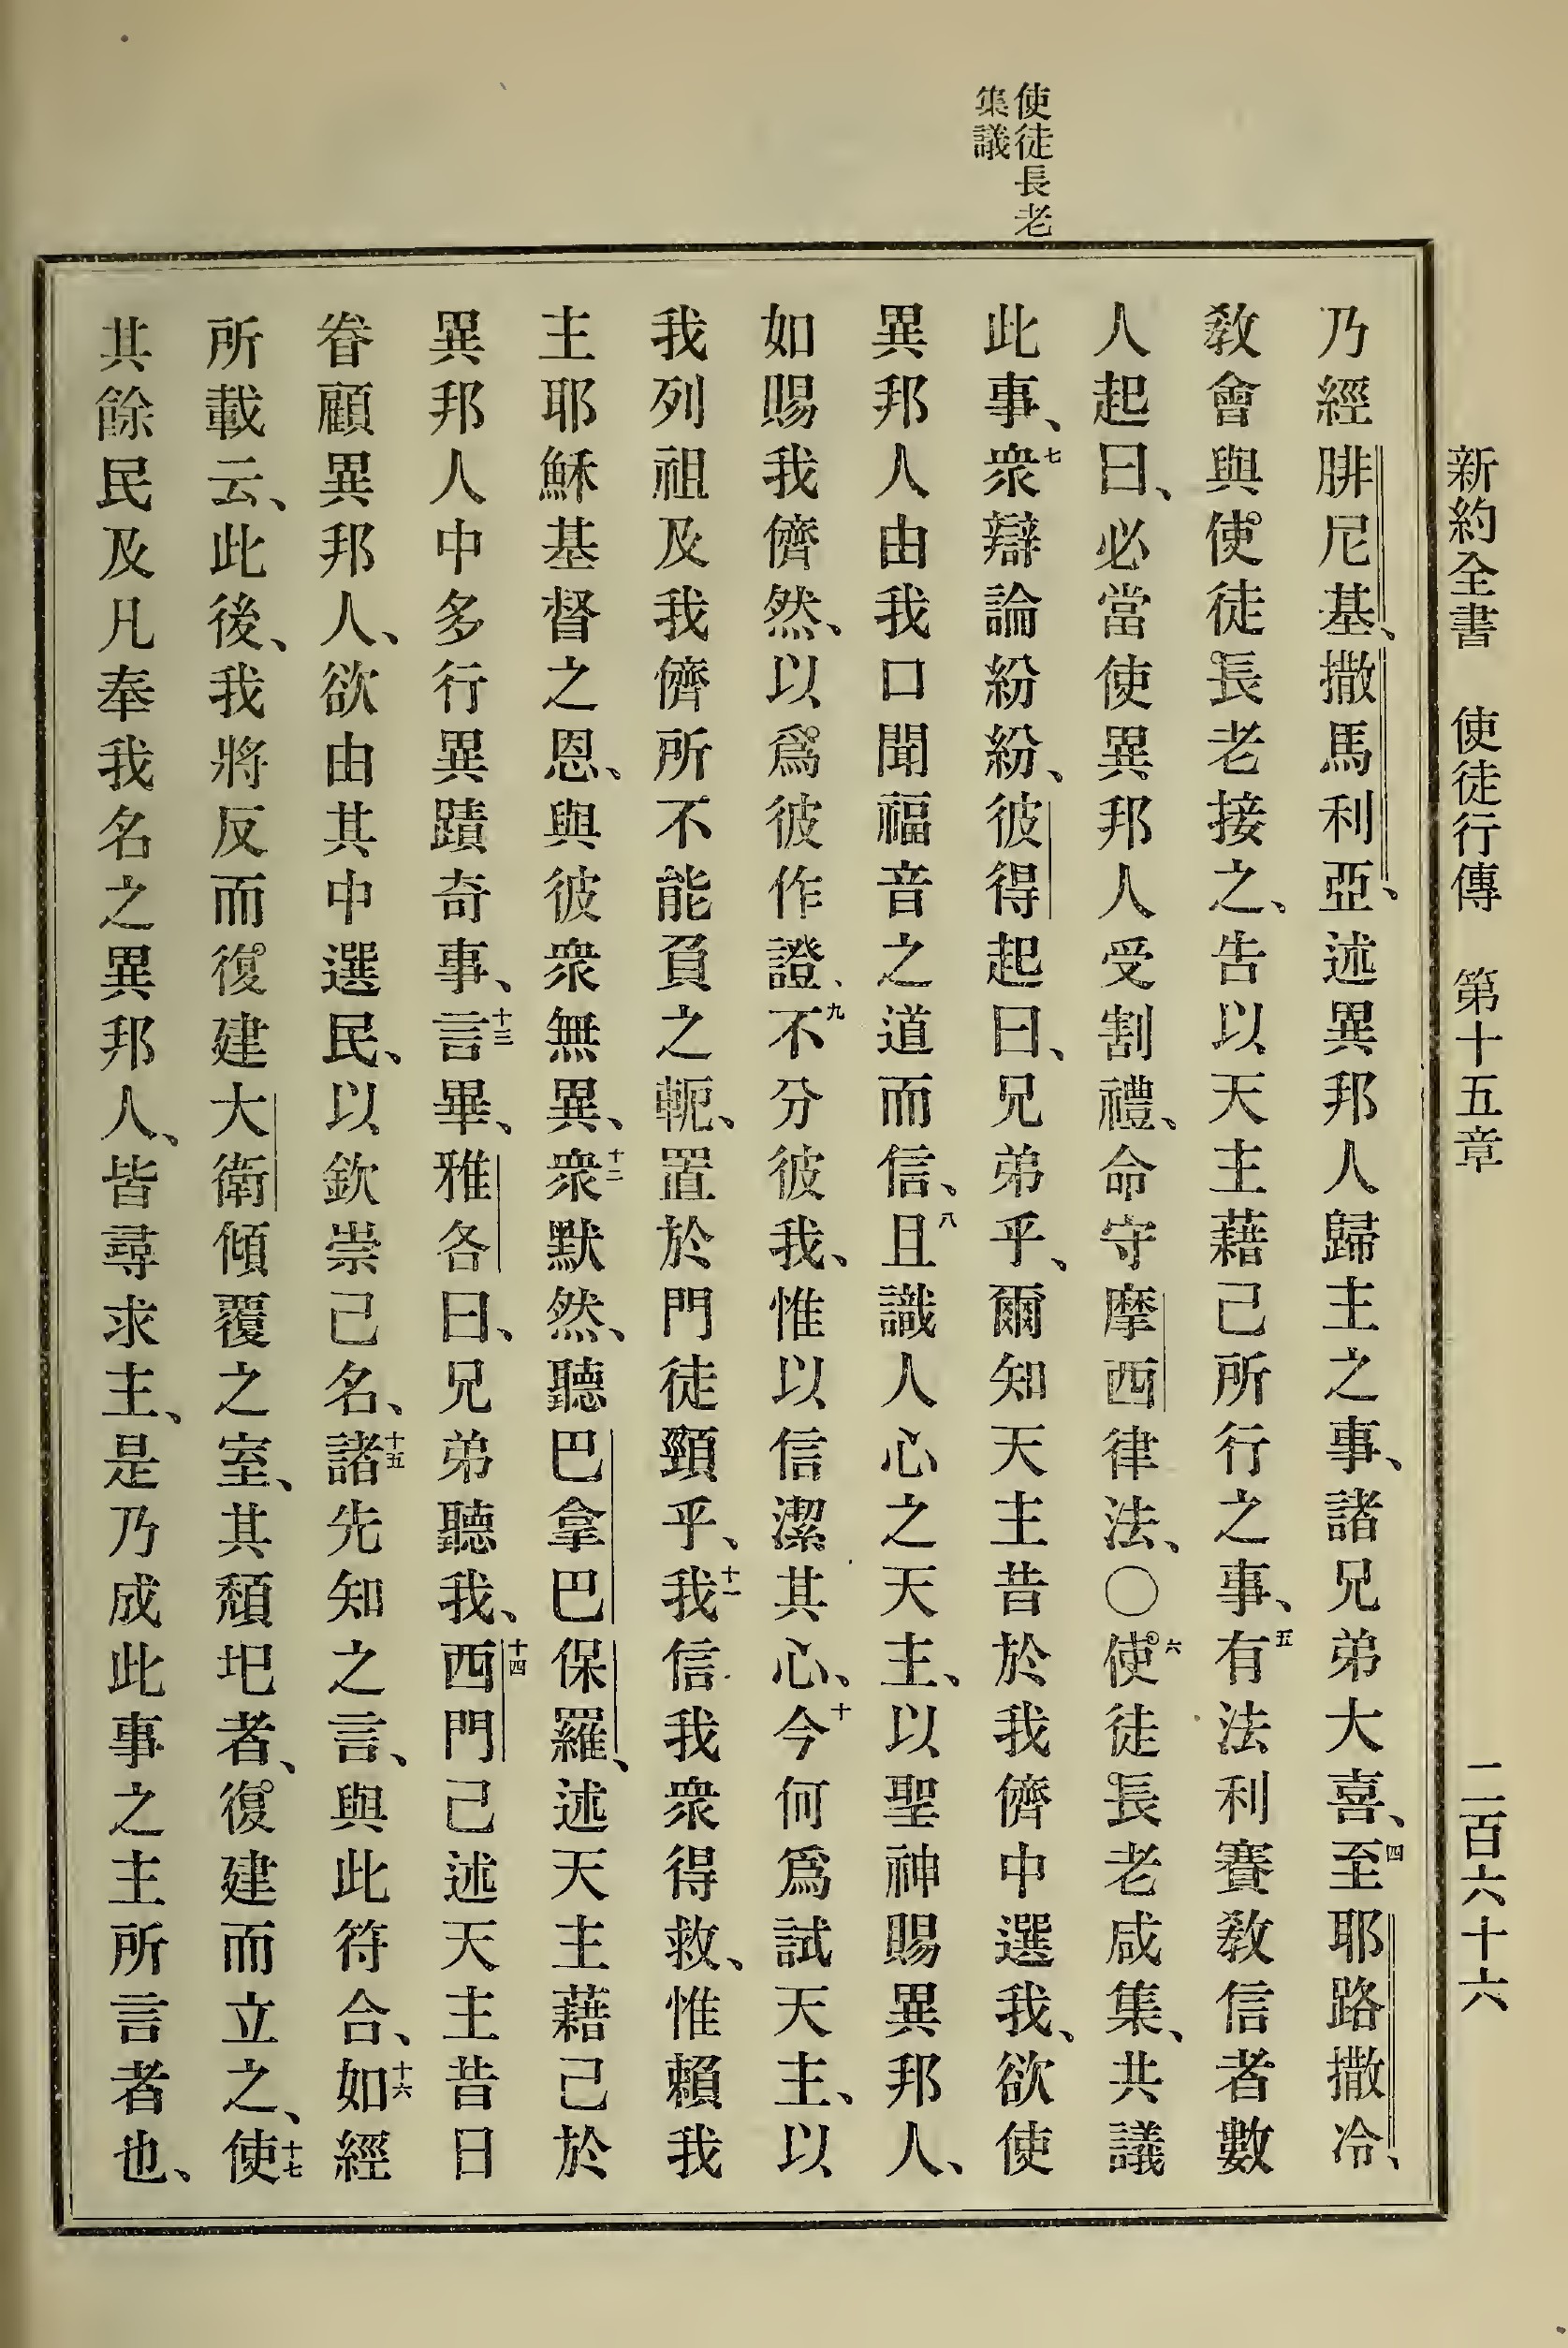 新約全書　使徒行傳　第十五章　二百六十六
使徒長老
集議
乃經腓尼基、撒馬利亞、述異邦人歸主之事、諸兄弟大喜、四至耶路撒冷、
教會與使徒長老接之、告以天主藉己所行之事、五有法利賽教信者數
人起曰、必當使異邦人受割禮、命守摩西律法、〇六使徒長老咸集、共議
此事、七衆辯論紛紛、彼得起曰、兄弟乎、爾知天主昔於我儕中選我、欲使
異邦人由我口聞福音之道而信、八且識人心之天主、以聖神賜異邦人、
如賜我儕然、以爲彼作證、九不分彼我、惟以信潔其心、十今何爲試天主、以
我列祖及我儕所不能負之軛、置於門徒頸乎、十一我信我衆得救、惟賴我
主耶穌基督之恩、與彼衆無異、十二衆默然、聽巴拿巴保羅、述天主藉己於
異邦人中多行異蹟奇事、十三言畢、雅各曰、兄弟聽我、十四西門己述天主昔日
眷顧異邦人、欲由其中選民、以欽崇己名、十五諸先知之言、與此符合、十六如經
所載云、此後、我將反而復建大衛傾覆之室、其頹圯者、復建而立之、十七使
其餘民及凡奉我名之異邦人、皆尋求主、是乃成此事之主所言者也、